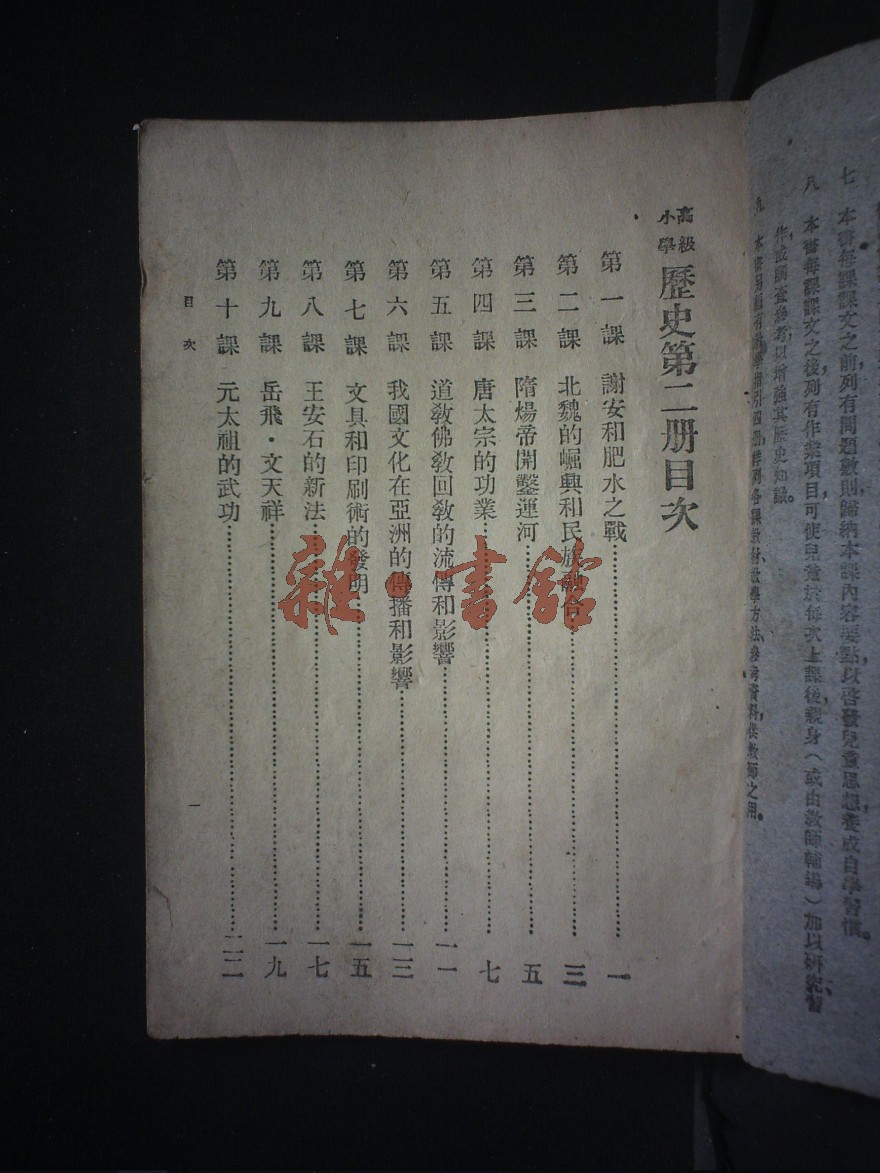 七　本書每課課文之前列有問題數則歸納本課內容要點以啓發兒童思想，養成自學習慣。
八　本書每課課文之後列有作業項目可使兒童於每次上課後親身（或由教師輔導）加以研究習
作或調查參考以增強其歷史知識。
教學方法，參考資料，供教師之用。
高級小學 歷史第二册目次
第一課　謝安和肥水之戰……一
第二課　北魏的崛興和民族融合……三
第三課　隋煬帝開鑿運河……五
第四課　唐太宗的功業……七
第五課　道敎佛敎回敎的流傳和影響……一一
第六課　我國文化在亞洲的傳播和影響……一三
第七課　文具和印刷術的發明……一五
第八課　王安石的新法……一七
第九課　岳飛・文天祥……一九
第十課　元太祖的武功……二二
目次
一
雜・書館